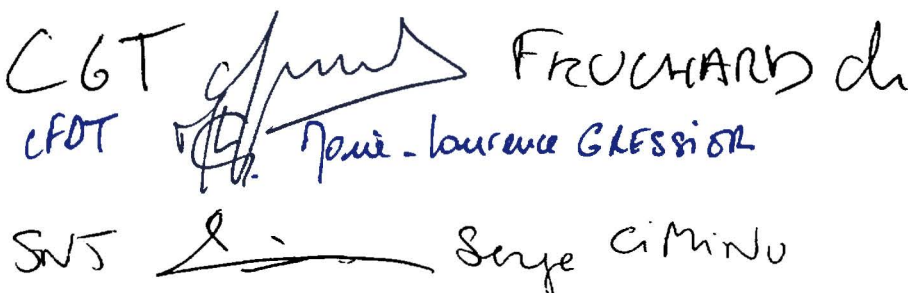 CGT FRUCHARD ch
CFDT Marie-Laurence GRESSIER
SNJ Serge CiMiNO